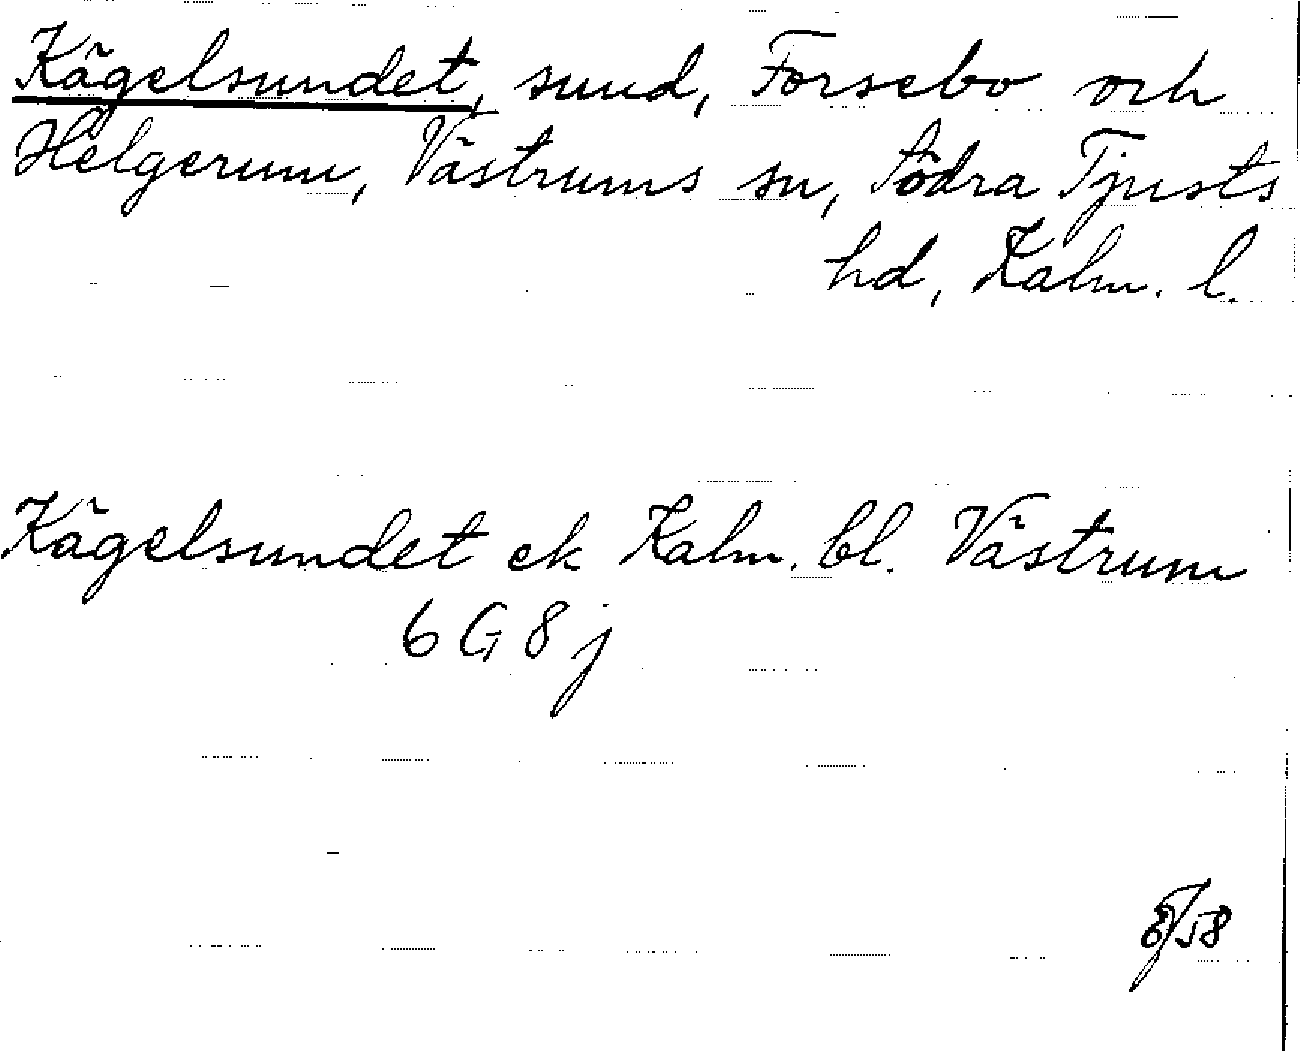 Kägelsundet, sund, Forsebo och
Helgerum, Västrums sn, Södra Tjusts
hd, Kalm. l.
Kägelsundet ek Kalm. bl. Västrum
6 G 8 j